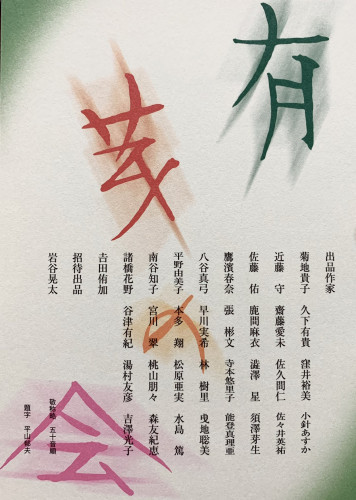 有
芽
の
会
出品作家
菊地貴子 久下有貴 窪井裕美 小針あすか
近藤 守 齋藤愛未 佐久間仁 佐々井英祐
佐藤 佑 鹿間麻衣 澁澤 星 須澤芽生
鷹濱春奈 張 彬文 寺本悠里子 能登真理亜
八谷真弓 早川実希 林 樹里 曳地聡美
平野由美子 本多 翔 松原亜実 水島 篤
南谷知子 宮川 翠 桃山朋々 森友紀恵
諸橋花野 谷津有紀 湯村友彦 吉澤光子
吉田侑加
招待出品
岩谷晃太
敬称略 五十音順
題字 平山郁夫